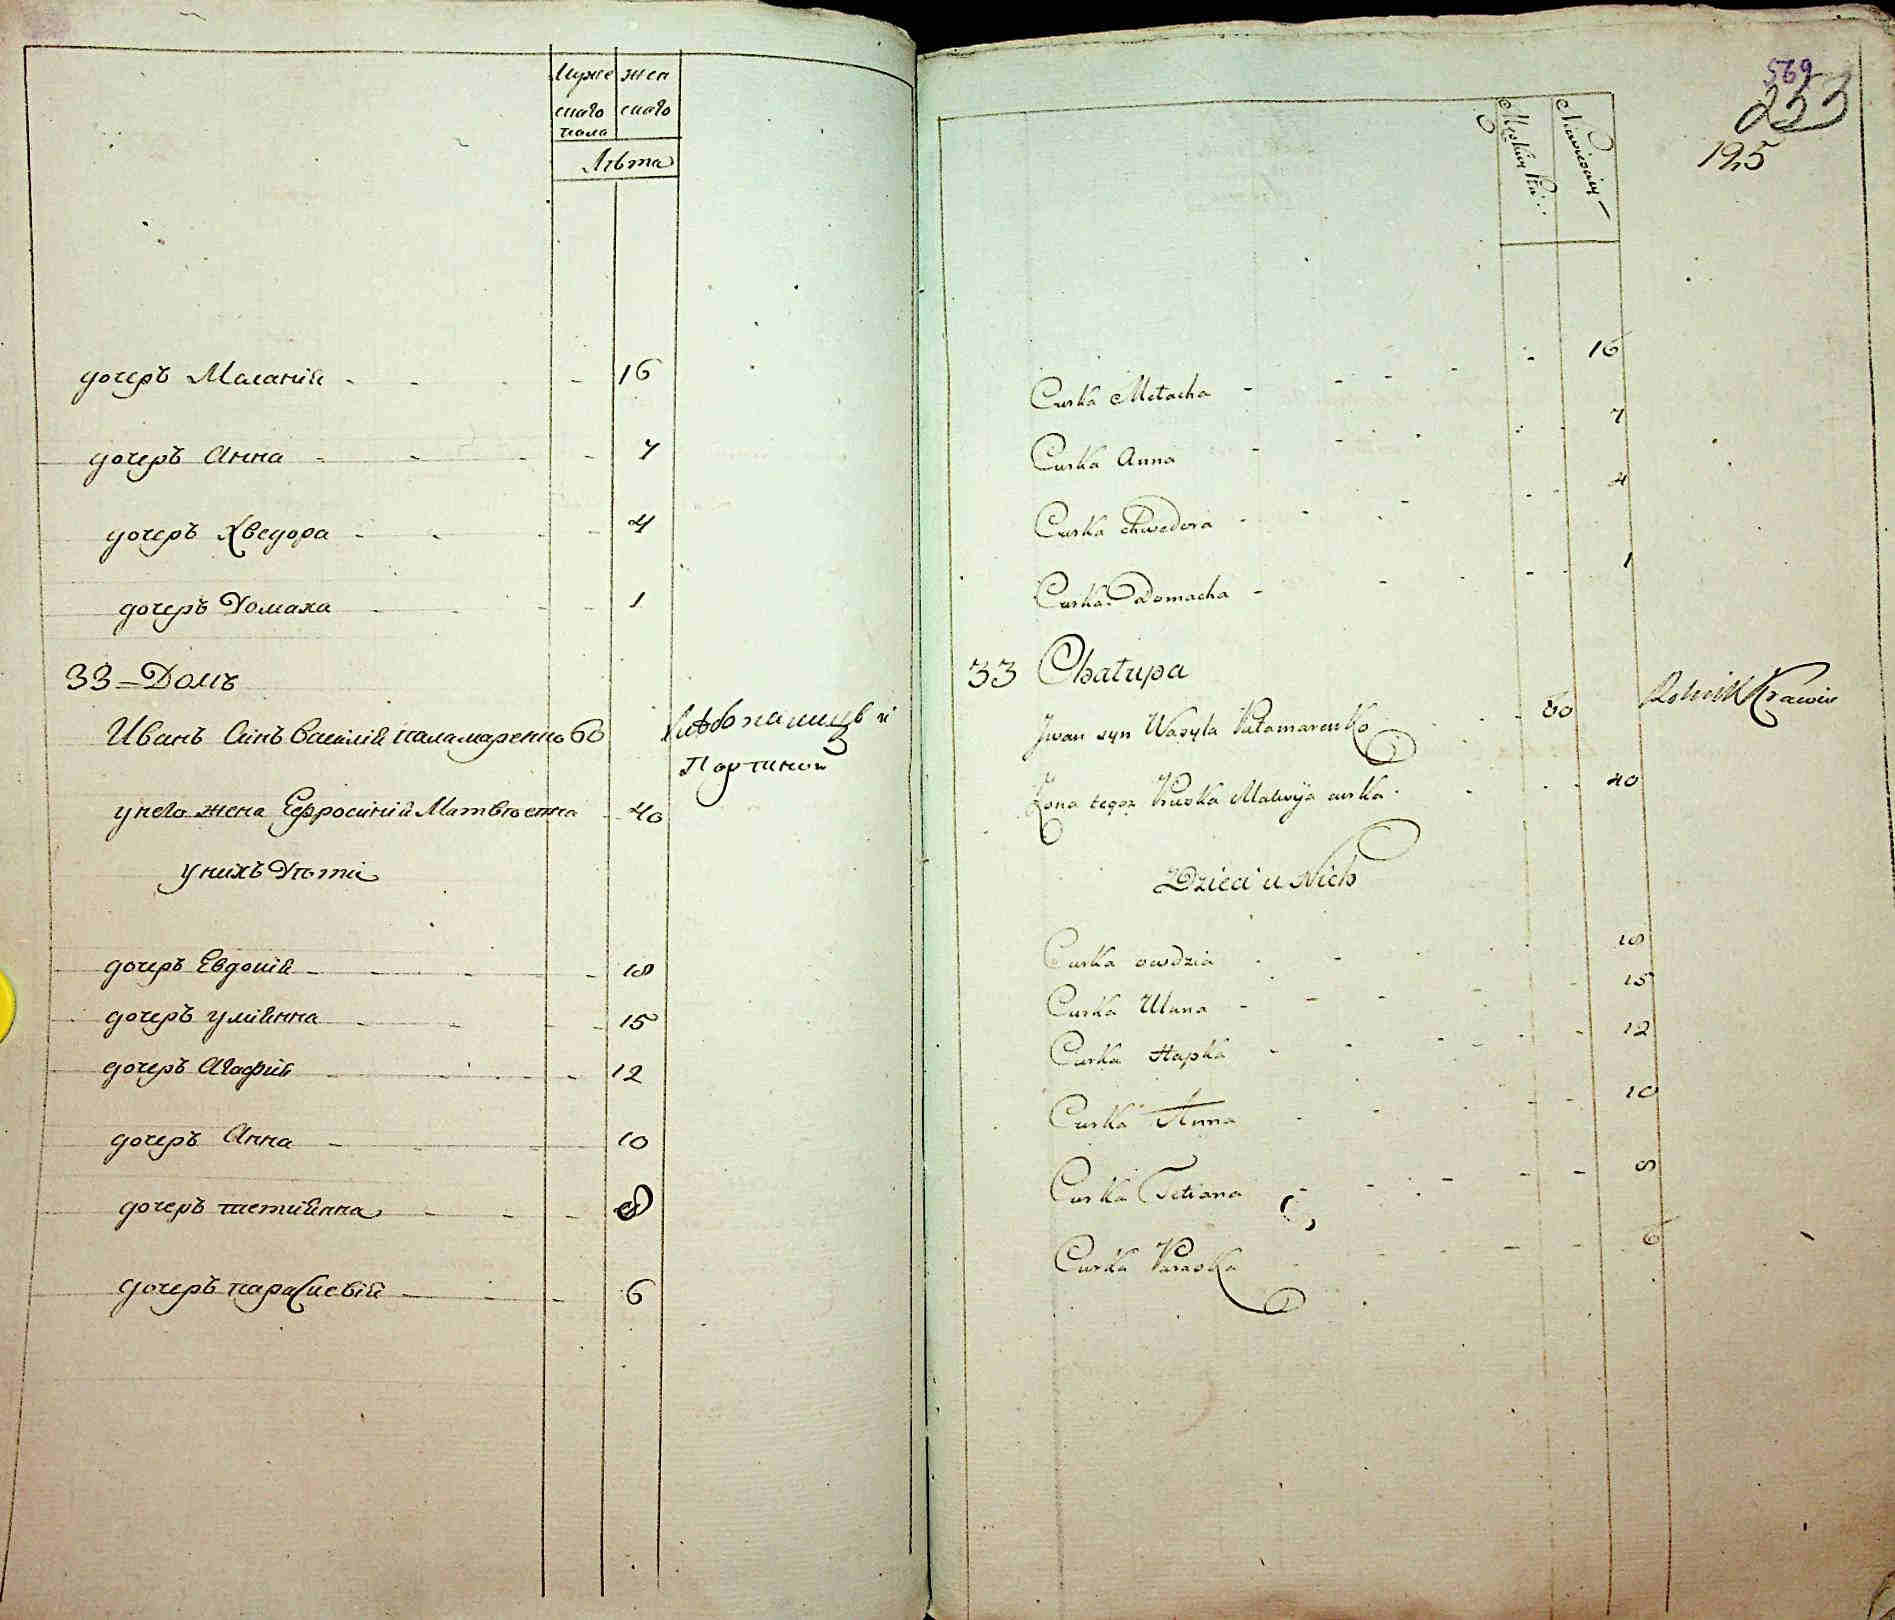 Муже жен
скаго скаго
пола
Лѣта
дочеръ Маланія 16
дочеръ Анна 7
дочеръ Хведора 4
дочеръ Домаха 1
33 – Домъ
Иванъ Синъ Василія паламаренко 60 Хлѣбопашецъ и
Портной
у него жена Ефросинія Матвѣевна 40
у нихъ Дѣти
дочеръ Евдокія 18
дочеръ улиянна 15
дочеръ Агафия 12
дочеръ Анна 10
дочеръ тетиянна 8
дочеръ параскевія 6
569
233
195
Męskiey Płci
Curka Mełacha 16
Curka Anna 7
Curka Chwedora 4
Curka Domacha 1
33 Chałupa
Jwan syn Wasyla Pałamarenko 60 Rolnik Krawiec
Żona tegoż Pruska Matwija curka 40
Dzieci u Nich
Curka owdzia 18
Curka Ulana 15
Curka Hapka 12
Curka Anna 10
Curka Tetiana 8
Curka Paraska 6